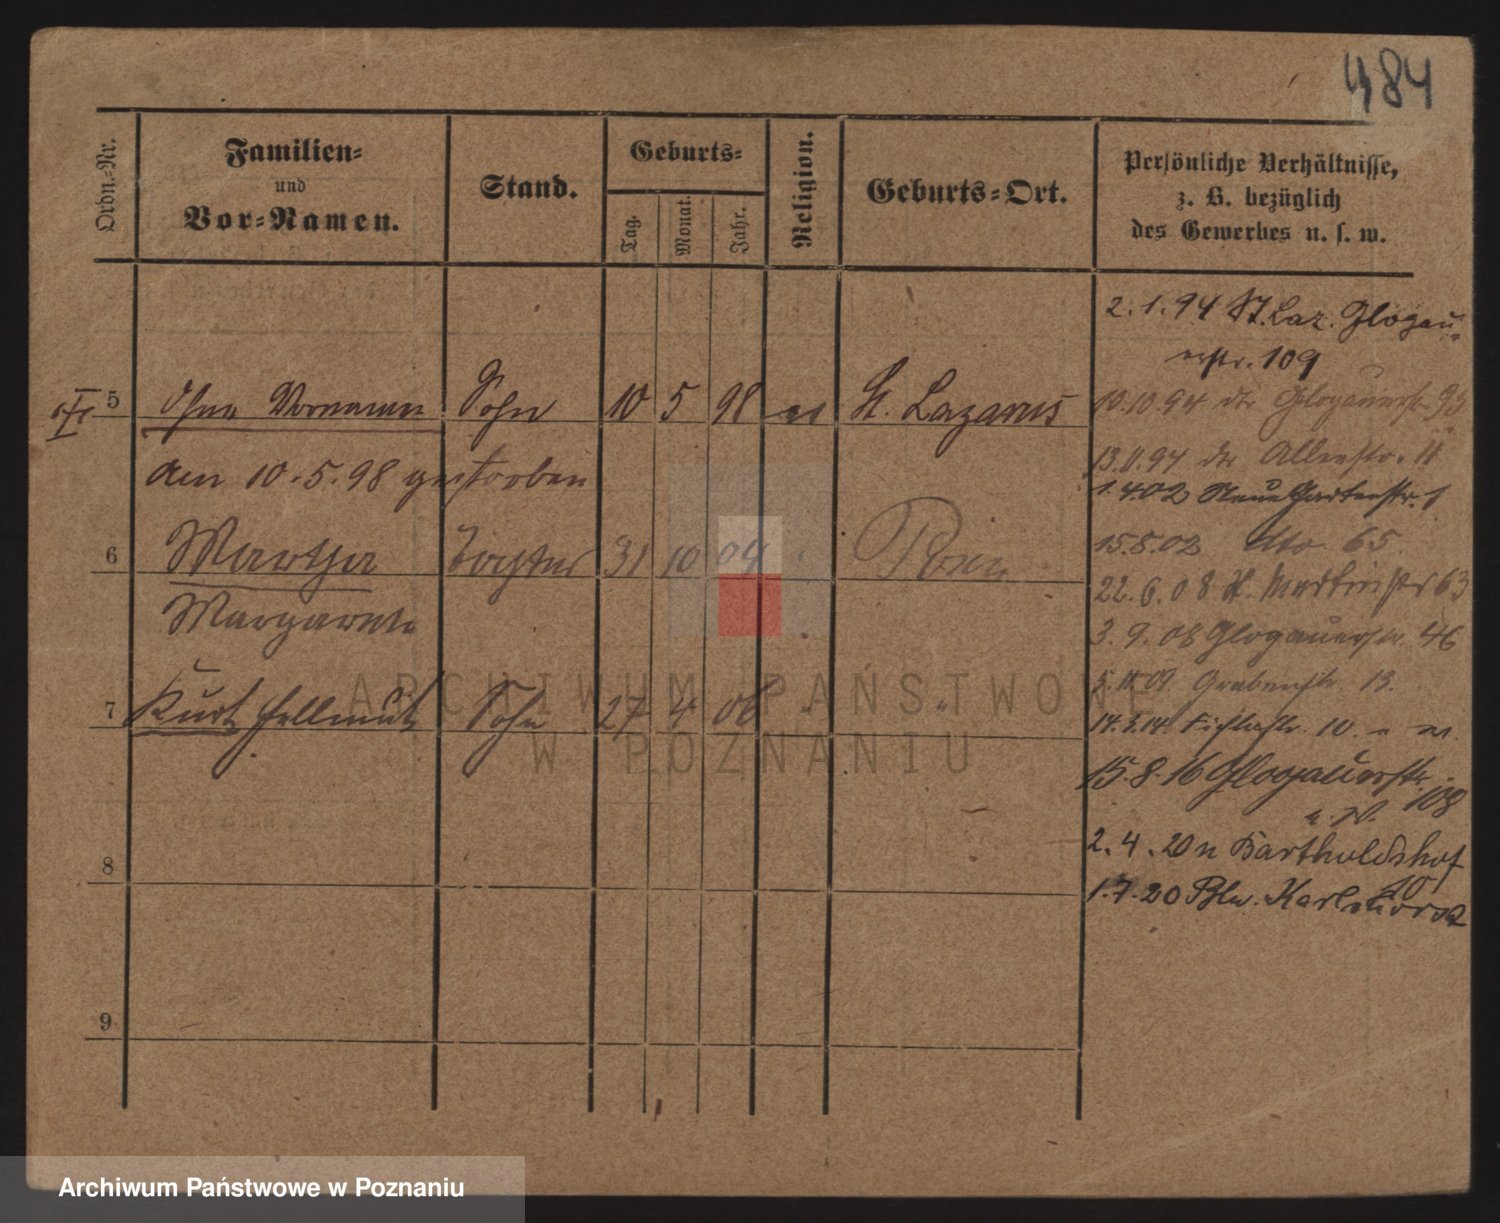 484
Ordn.-Nr.
Familien-
und
Vor-Namen.
Stand.
Geburts-
Tag.
Monat.
Jahr.
Religion.
Geburts-Ort.
Persönliche Verhältnisse,
z. B. bezüglich
des Gewerbes u. s. w.
2.1.94 St. Laz. Glogau-
erstr. 109
5 Ohne Vornamen Sohn 10 5 98 St. Lazarus
am 10.5.98 gestorben
10.10.94 dto Glogauerstr. 93
13.11.94 dto Alleestr. 11
1.4.02 Neue Gartenstr. 1
6 Martha Tochter 31 10 09 Posen
Margarete
15.5.02 dto 65
22.6.08 St. Martinstr 63
3.9.08 Glogauerstr. 46
7 Kurt Hellmut Sohn 27 4 06
5.11.09 Grabenstr. 13.
14.3.14 Fichtestr. 10.
15.8.16 Glogauerstr. 108
2.4.20 n Bartholdshof
10
1.7.20 Bln. Karlshorst
8
9
ARCHIWUM PAŃSTWOWE
W POZNANIU
Archiwum Państwowe w Poznaniu